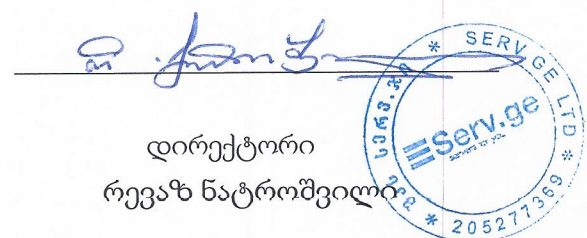 დირექტორი
რევაზ ნატროშვილი
* SERV GE LTD * 205277369 * შპს სერვ.ჯი
Serv.ge
servers for you